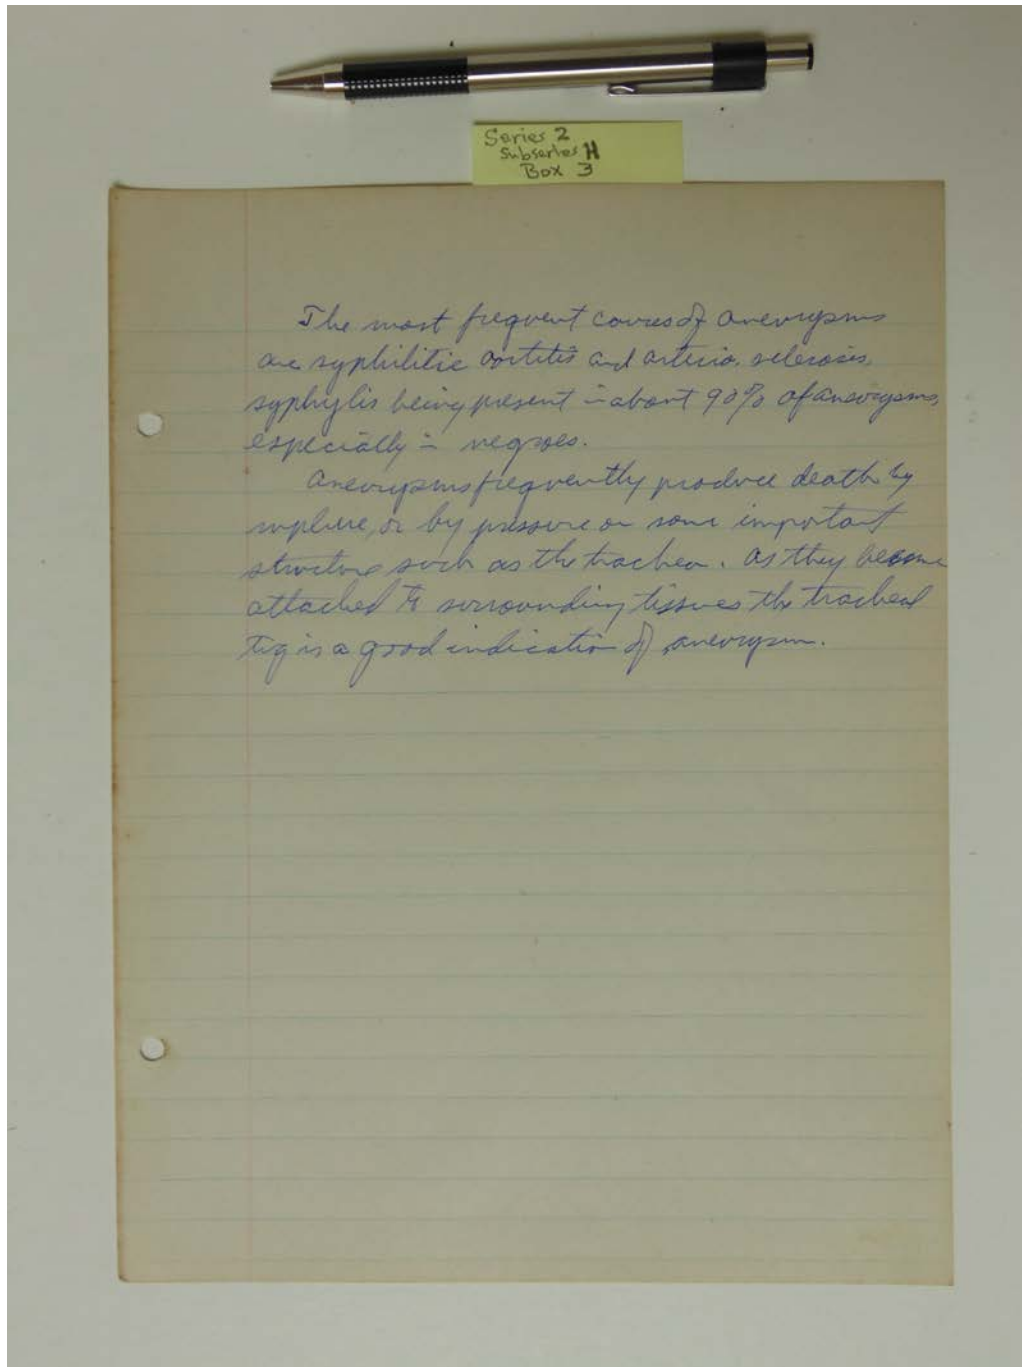 Series 2
Subseries H
Box 3
The most frequent causes of aneurysms
are syphilitic aortitis and arterio sclerosis,
syphylis being present in about 90% of aneurysms,
especially in negroes.
Aneurysms frequently produce death by
rupture, or by pressure on some important
structure such as the trachea. As they become
attached to surrounding tissues the tracheal
tug is a good indication of aneurysm.